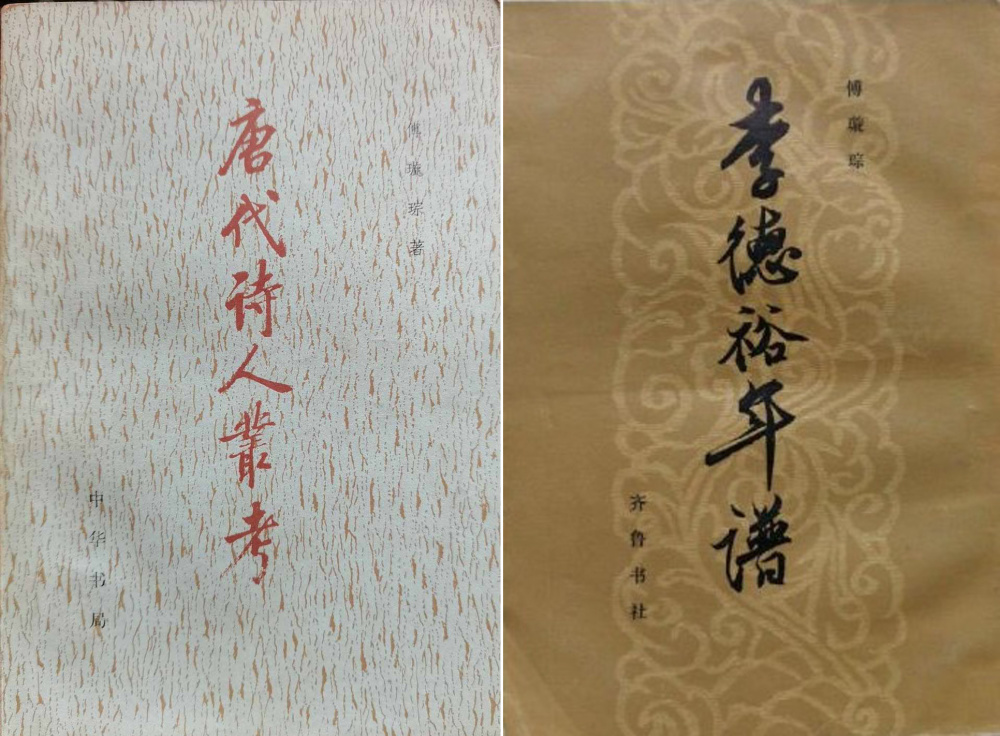 傅璇琮著
唐代诗人叢考
中华书局
傅璇琮
李德裕年谱
齐鲁书社